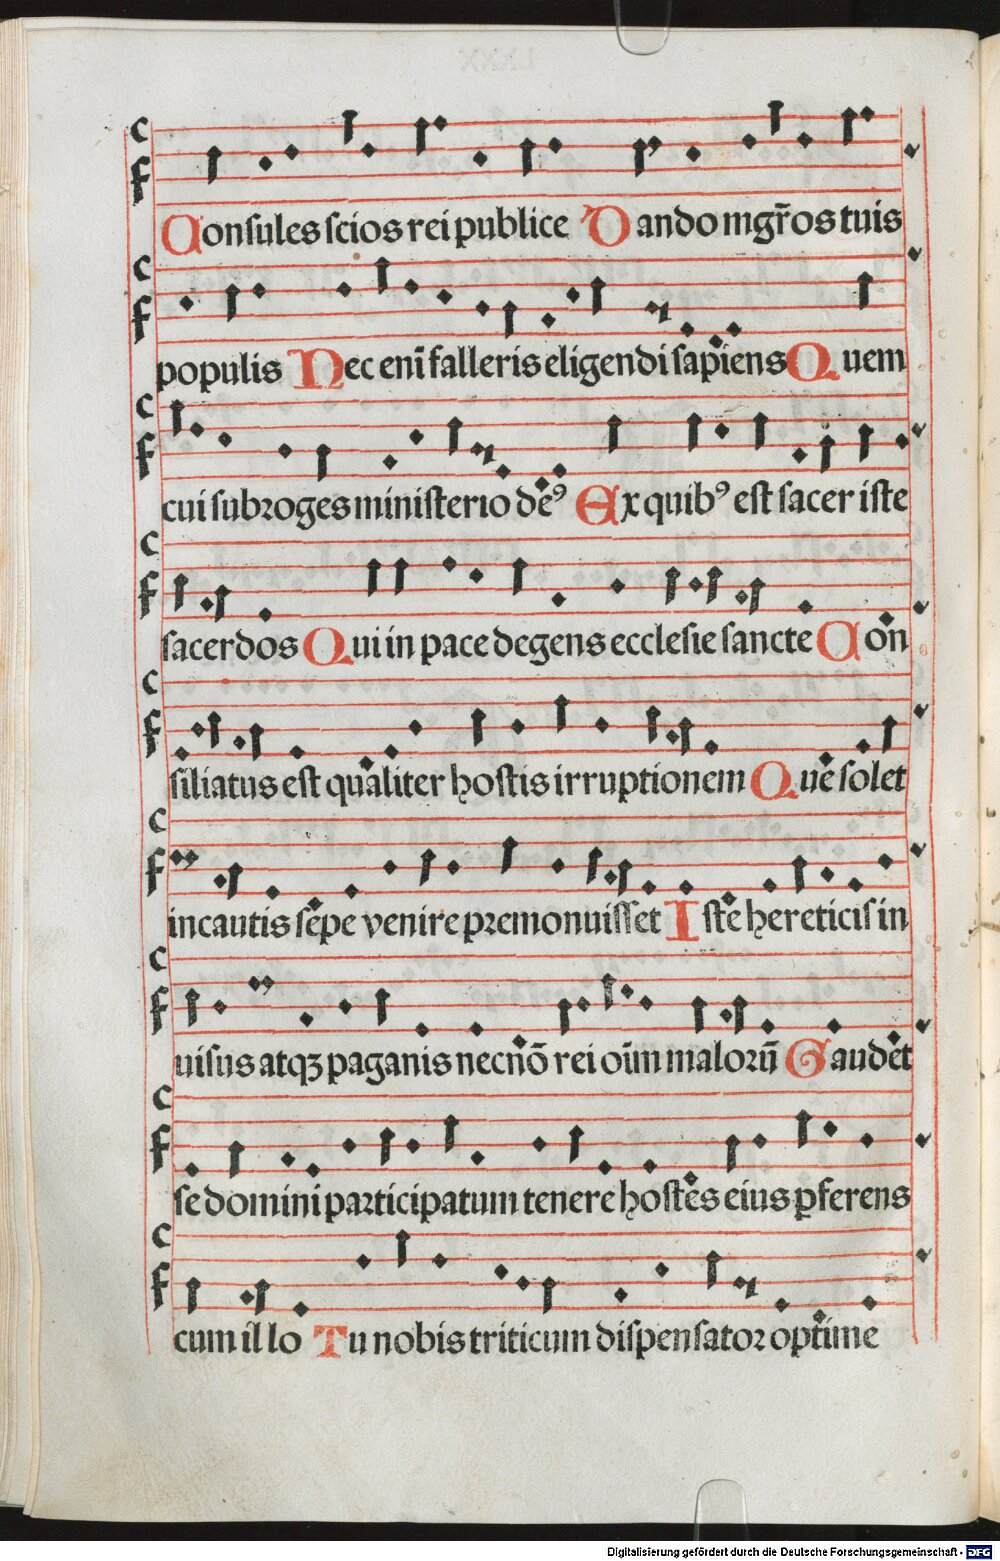 Consules scios rei publice Dando mgr̃os tuis
populis Nec eni᷑ falleris eligendi sapiens Quem
cui subroges ministerio deꝰ Ex quibꝰ est sacer iste
sacerdos Qui in pace degens ecclesie sancte Con
siliatus est qualiter hostis irruptionem Que solet
incautis sepe venire premonuisset Iste hereticis in
uisus atqꝫ paganis necnō rei oīm malorū Gaudet
se domini participatum tenere hostes eius ꝑferens
cum illo Tu nobis triticum dispensator optime
Digitalisierung gefördert durch die Deutsche Forschungsgemeinschaft - DFG